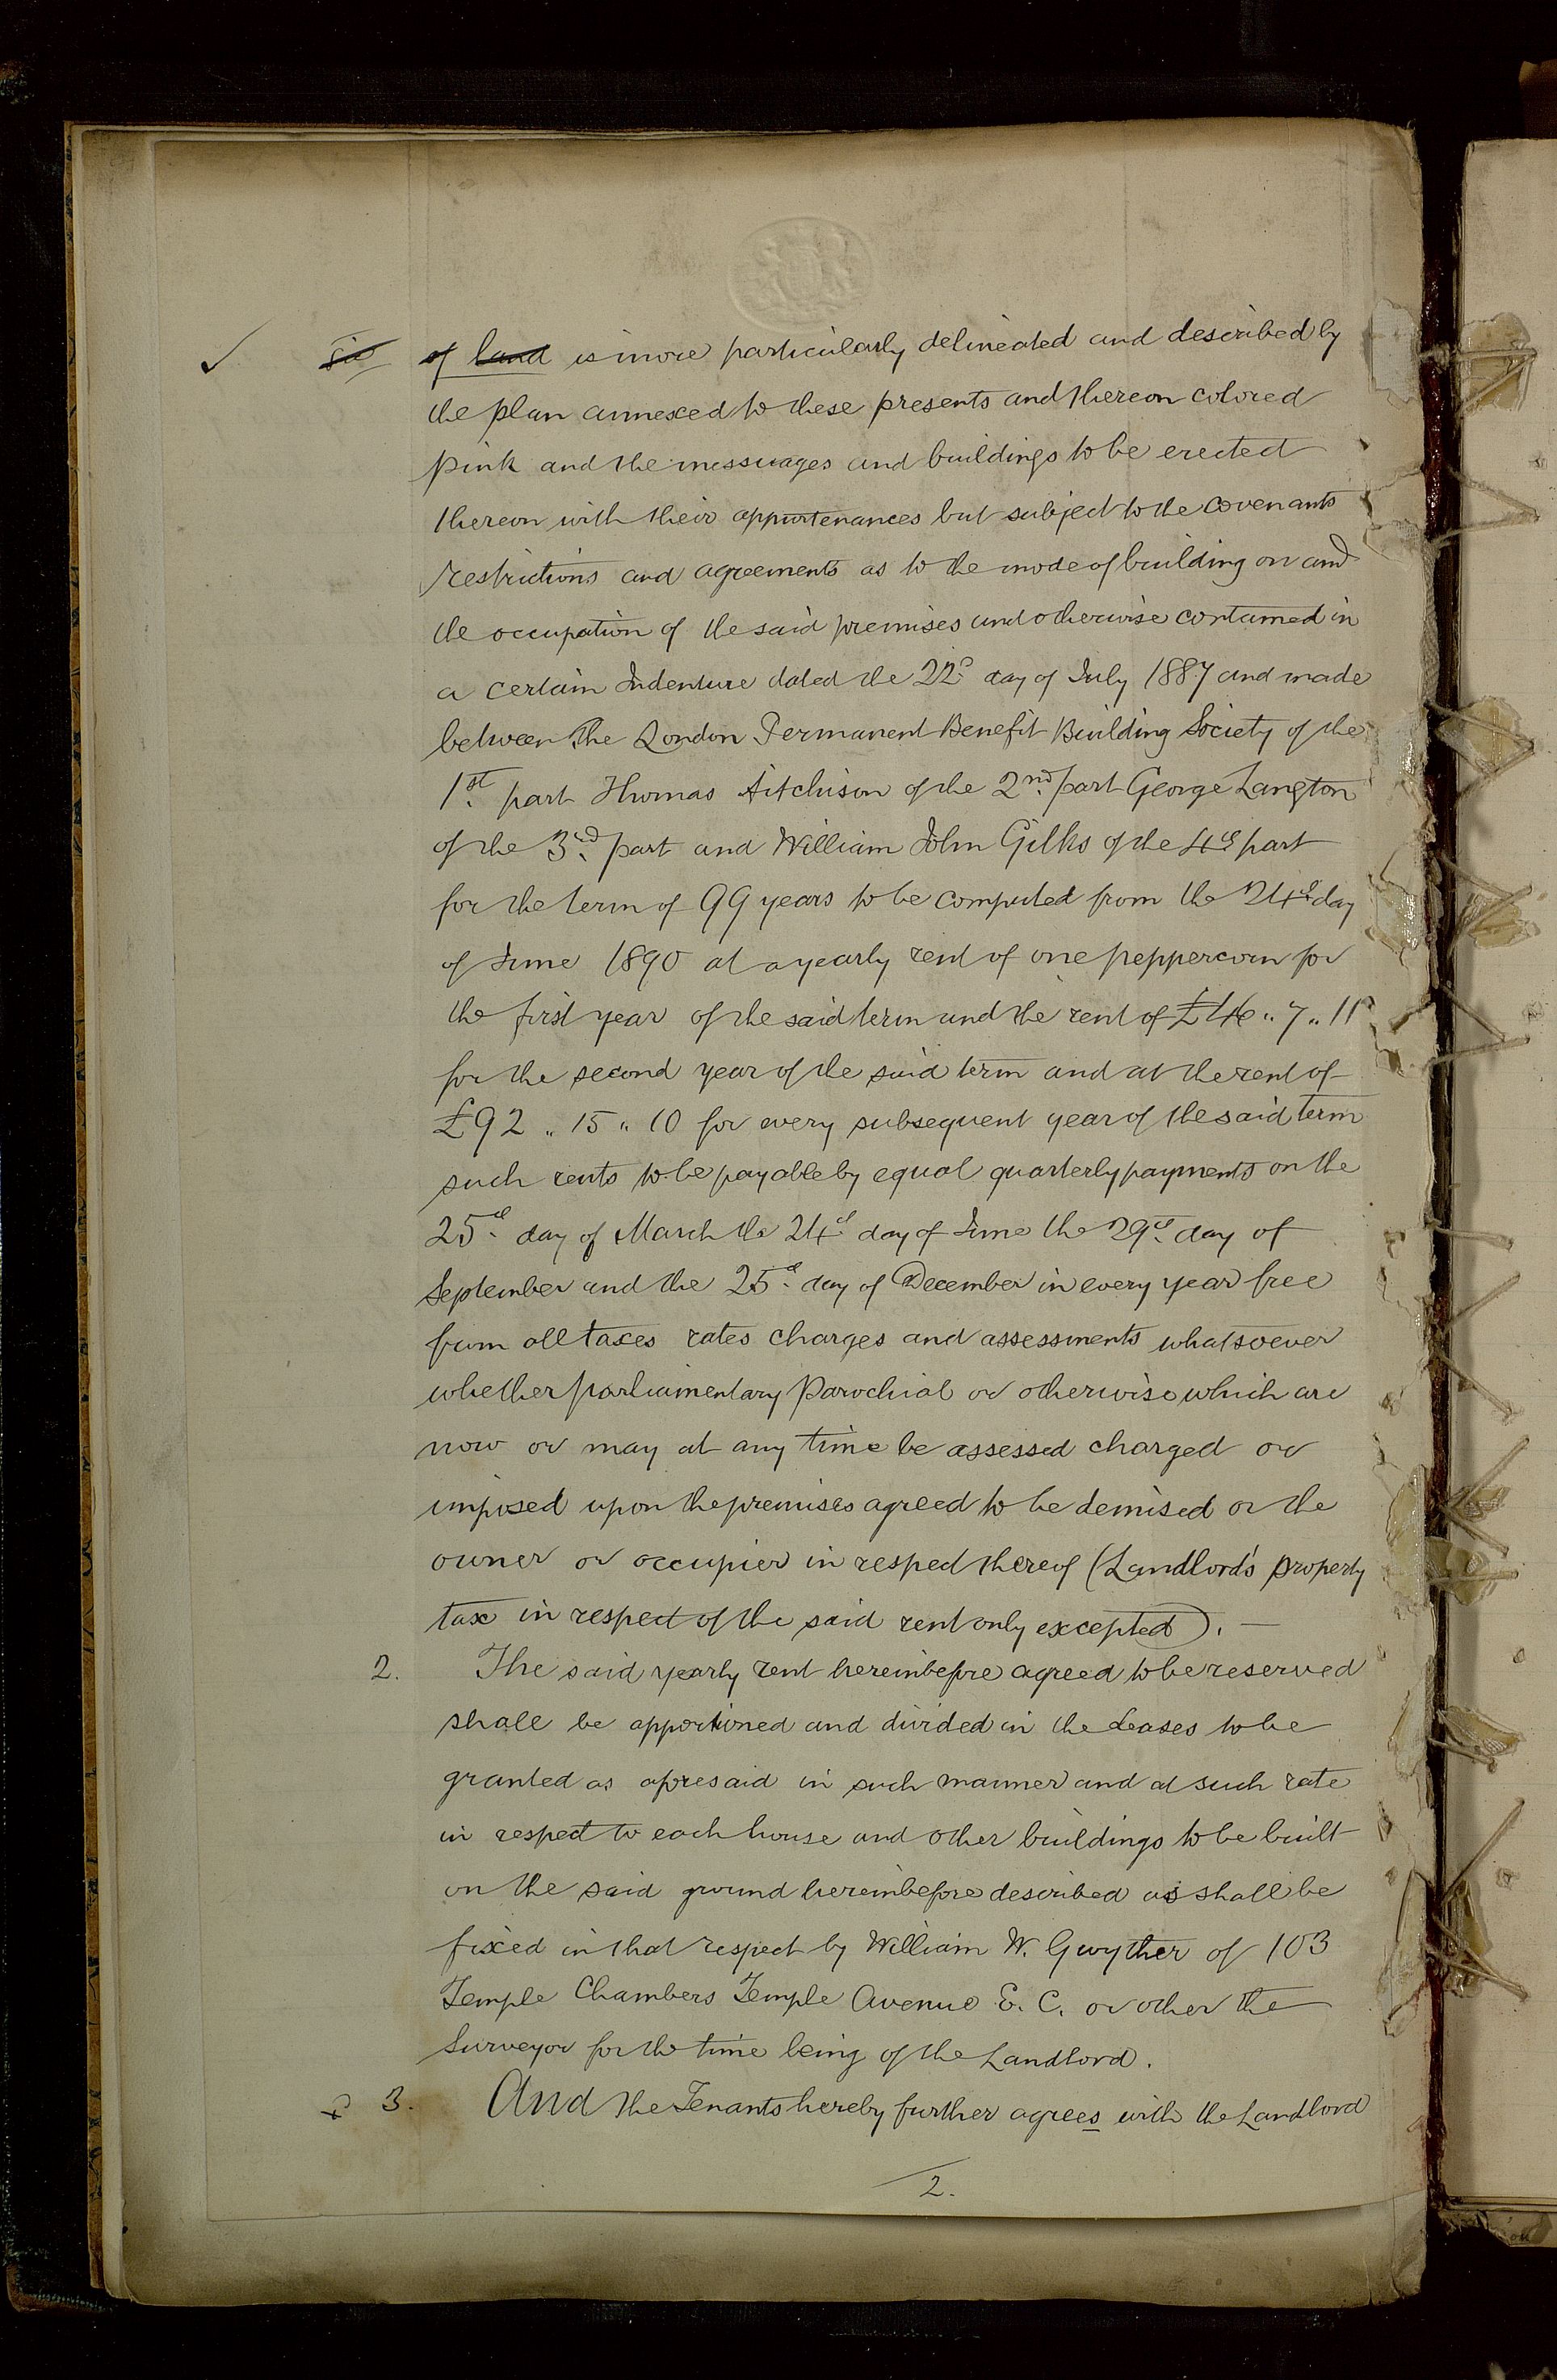 sic of land is more particularly delineated and described by
the plan annexed to these presents and thereon colored
pink and the messuages and buildings to be erected
thereon with their appurtenances but subject to the covenants
restrictions and agreements as to the mode of building on and
the occupation of the said premises and otherwise contained in
a certain Indenture dated the 22d day of July 1887 and made
between The London Permanent Benefit Building Society of the
1st part Thomas Aitchison of the 2nd part George Langton
of the 3rd part and William John Gilks of the 4th part
for the term of 99 years to be computed from the 24th day
of June 1890 at a yearly rent of one peppercorn for
the first year of the said term and the rent of £46 " 7 " 11
for the second year of the said term and at the rent of
£92 " 15 " 10 for every subsequent year of the said term
such rents to be payable by equal quarterly payments on the
25th day of March the 24th day of June the 29th day of
September and the 25th day of December in every year free
from all taxes rates charges and assessments whatsoever
whether parliamentary Parochial or otherwise which are
now or may at any time be assessed charged or
imposed upon the premises agreed to be demised or the
owner or occupier in respect thereof (Landlord's property
tax in respect of the said rent only excepted).
2. The said yearly rent hereinbefore agreed to be reserved
shall be apportioned and divided in the Leases to be
granted as aforesaid in such manner and at such rate
in respect to each house and other buildings to be built
on the said ground hereinbefore described as shall be
fixed in that respect by William W. Gwyther of 103
Temple Chambers Temple Avenue E. C. or other the
Surveyor for the time being of the Landlord.
3. And the Tenants hereby further agrees with the Landlord
2.